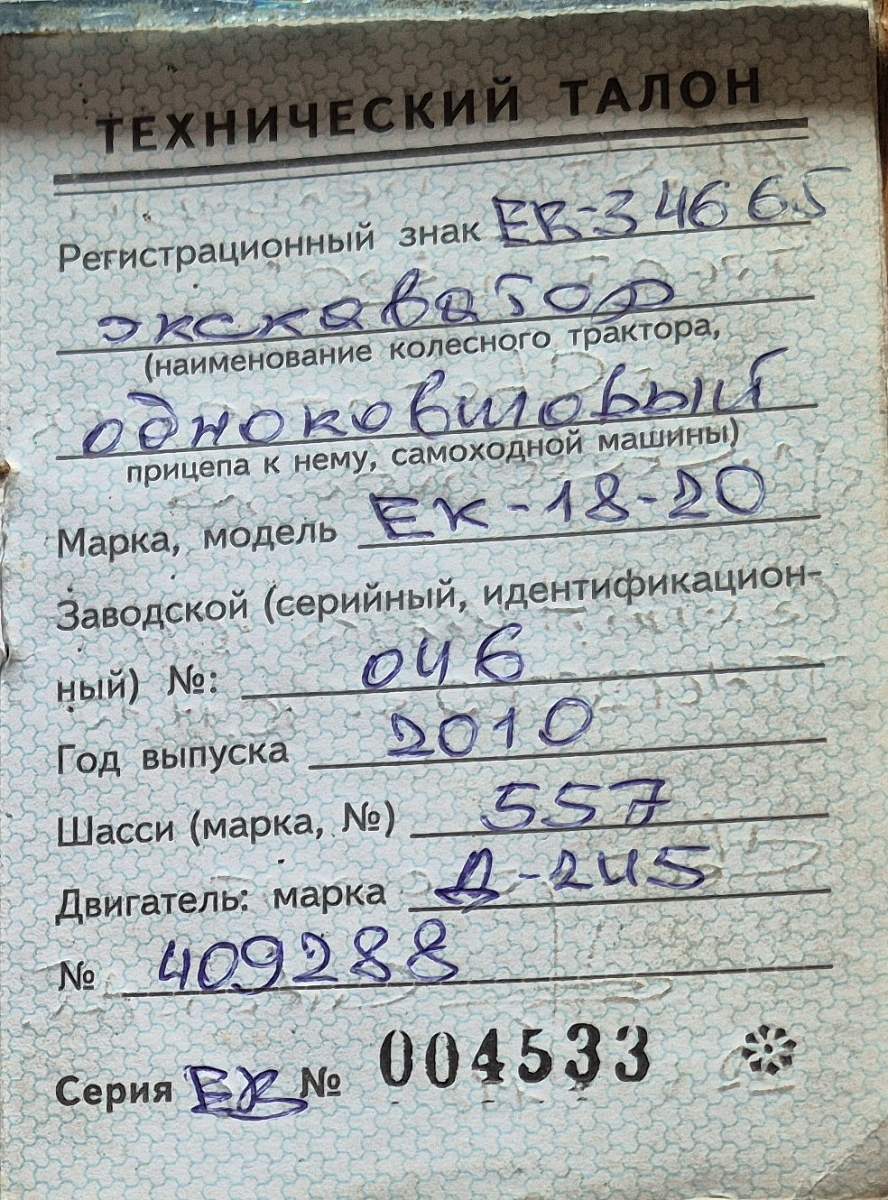 ТЕХНИЧЕСКИЙ ТАЛОН
Регистрационный знак ЕВ-34665
экскаватор
(наименование колесного трактора,
одноковшовый
прицепа к нему, самоходной машины)
Марка, модель ЕК-18-20
Заводской (серийный, идентификацион-
ный) №: 046
Год выпуска 2010
Шасси (марка, №) 557
Двигатель: марка Д-245
№ 409288
Серия ЕК № 004533